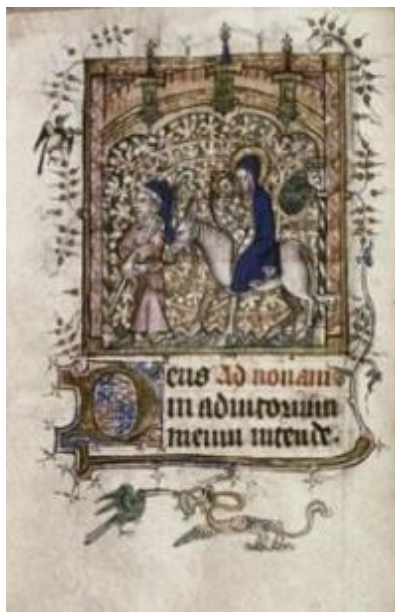 Deus Ad nonam
in adiutorium
meum intende.